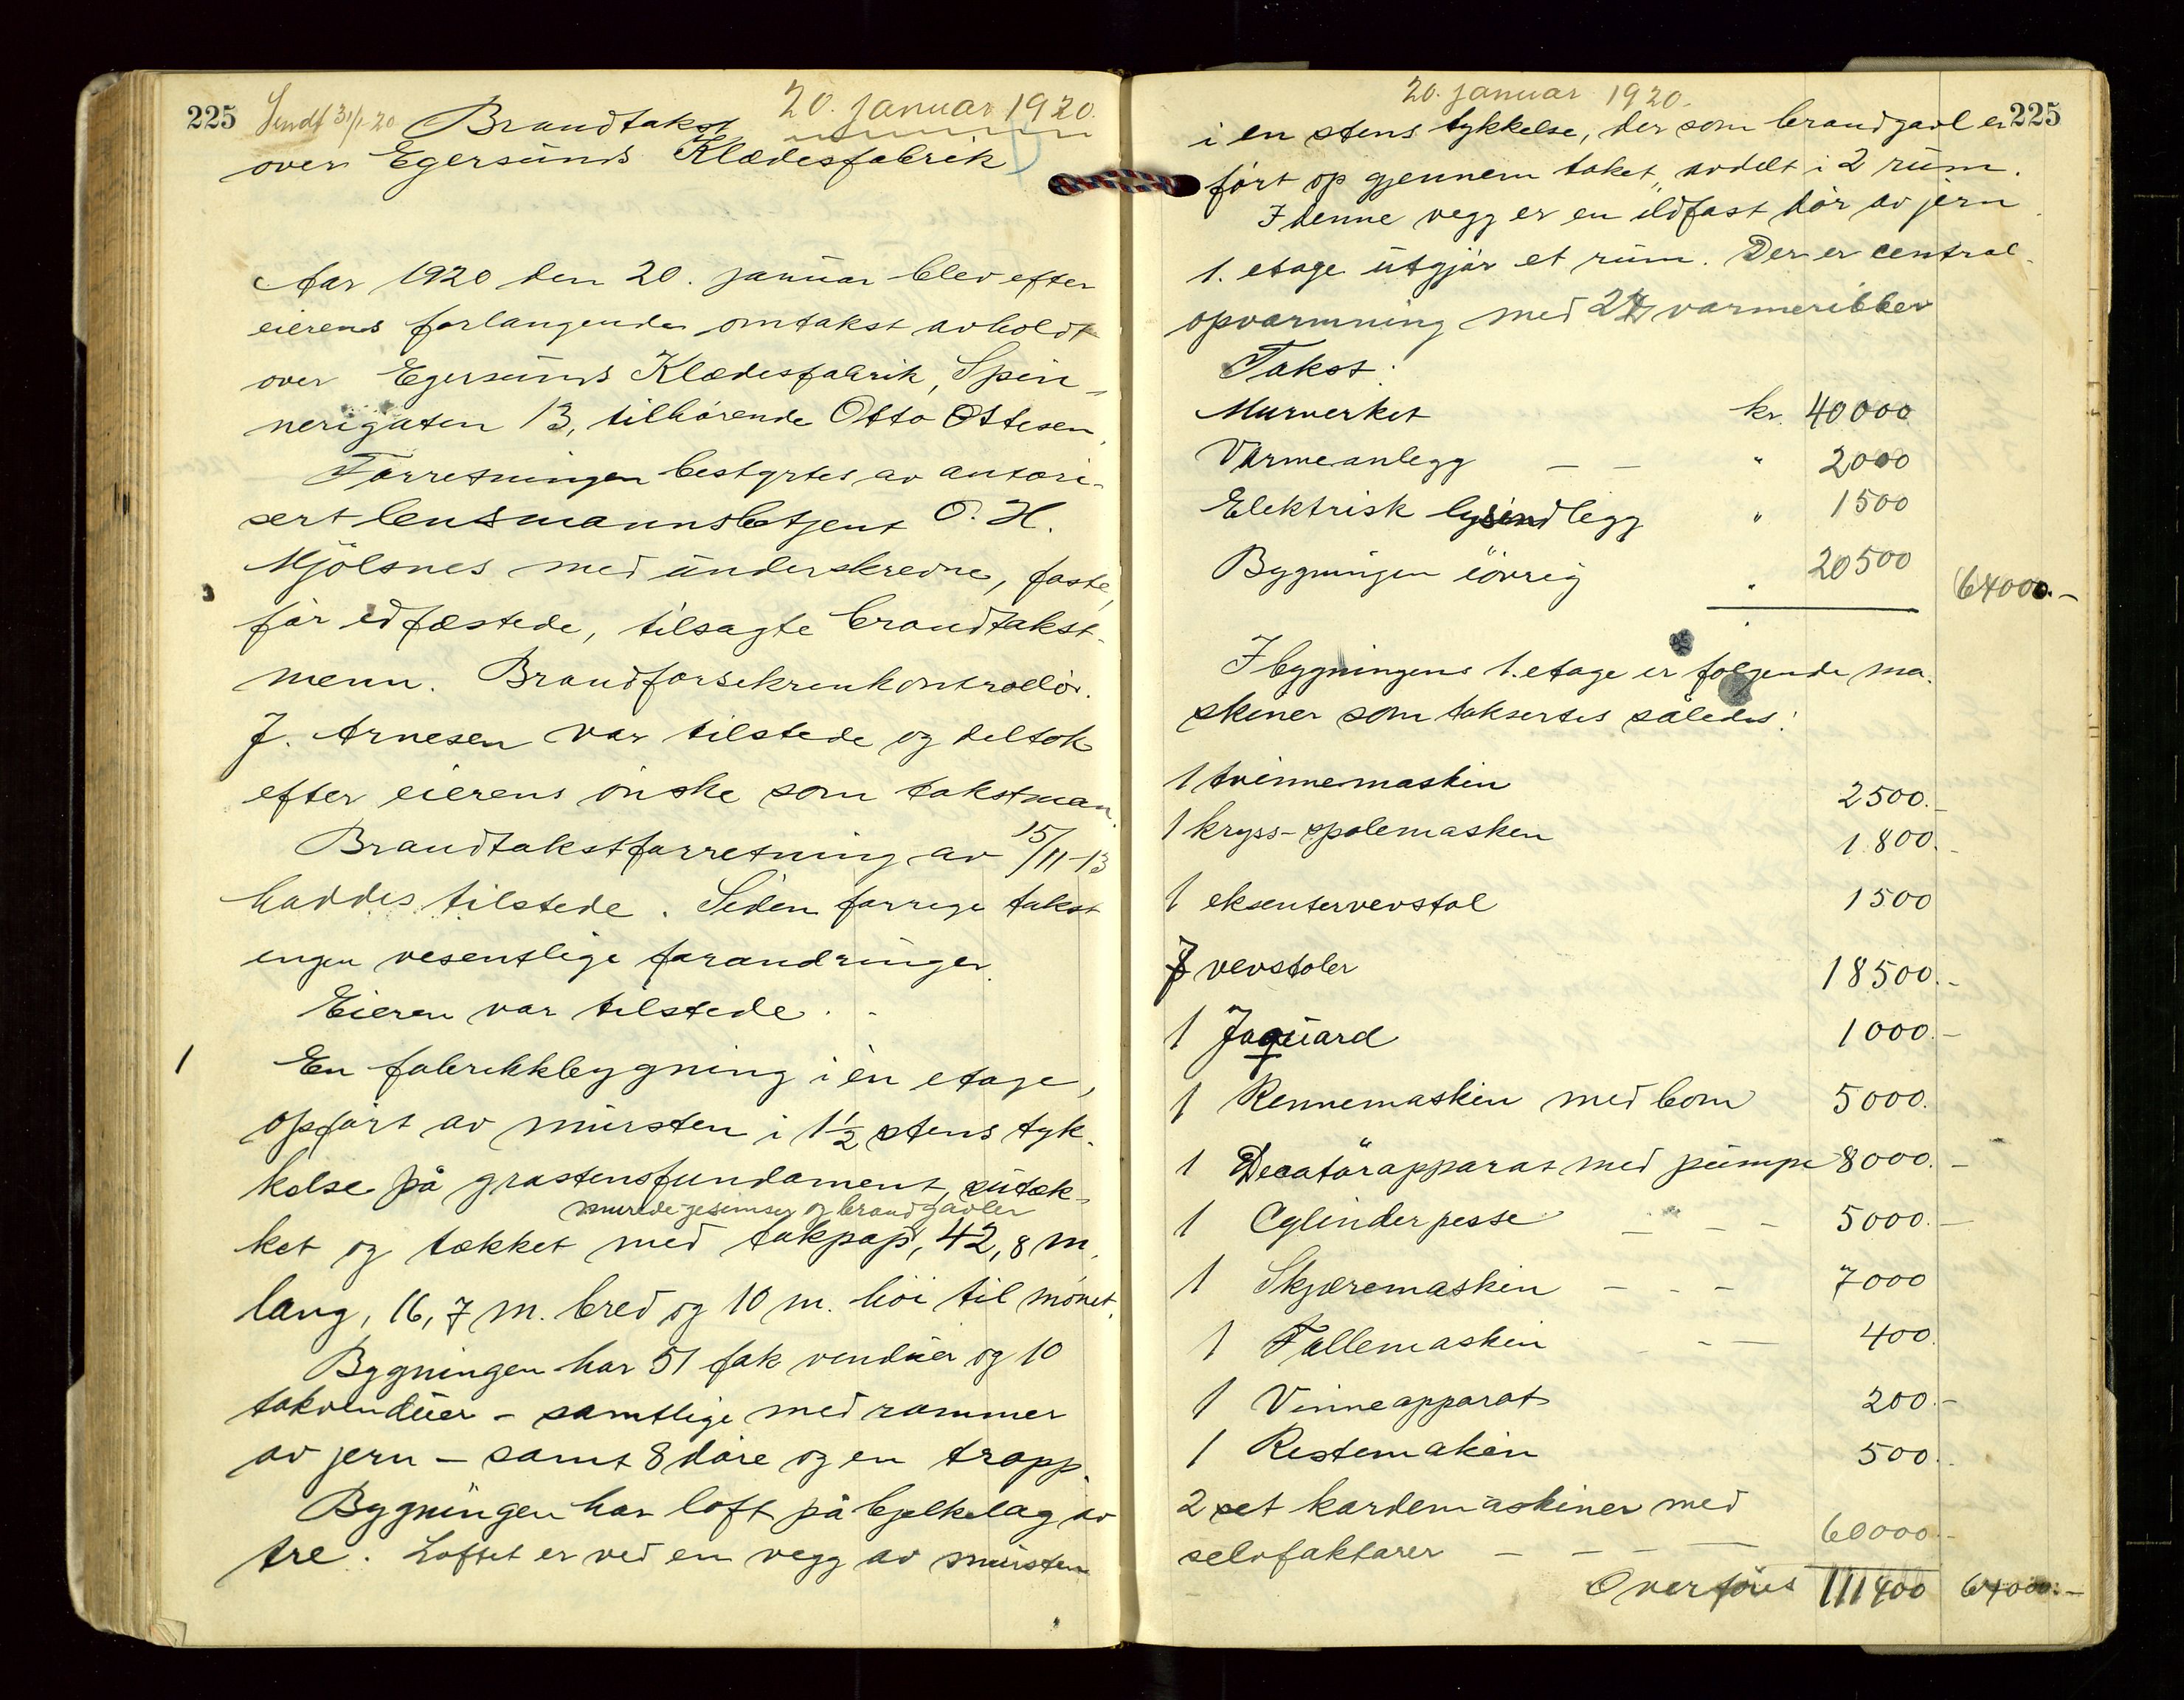 225 Sendt 31/1-20 Brandtakst 20. januar 1920.
over Egersunds Klædesfabrik
Aar 1920 den 20. januar blev efter
eierens forlangende omtakst avholdt
over Egersunds Klædesfabrik, Spin-
nerigaten 13, tilhørende Otto Ottesen.
Forretningen bestyrtes av autori-
sert lensmannsbetjent O. H.
Mjølsnes med underskrevne, faste,
før edfæstede, tilsagte brandtakst-
menn. Brandforsikrenkontrollør
J. Arnesen var tilstede og deltok
efter eierens ønske som takstman.
Brandtakstforretning av 15/11-13
haddes tilstede. Siden forrige takst
ingen vesentlige forandringer.
Eieren var tilstede.
1 En fabrikkbygning i èn etage,
opført av mursten i 1½ stens tyk-
kelse på grastensfundament, sutæk-
murede gesimser og brandgavler
ket og tækket med takpapp, 42,8 m.
lang, 16,7 m. bred og 10 m. høi til mønet.
Bygningen har 51 fak venduer og 10
takvenduer - samtlige med rammer
av jern - samt 8 døre og en trapp.
Bygningen har loft på bjelkelag av
tre. Loftet er ved en vegg av mursten
20. januar 1920.
225
i en stens tykkelse, der som brandgavl er
ført op gjennem taket, avdelt i 2 rum.
I denne vegg er en ildfast dør av jern
1. etage utgjør et rum. Der er central-
opvarmning med varmeribber
Takst:
Murverket kr. 40000
Varmeanlegg — — " 2000
Elektrisk lysindlegg " 1500
Bygningen iøvrig " 20500 64000.-
I bygningens 1. etage er følgende ma-
skiner som taksertes således:
1 tvinnemaskin 2500.-
1 kryss-spolemasken 1800.-
1 eksentervevstol 1500
7 vevstoler 18500.-
1 Jaquard 1000.-
1 Rennemaskin med bom 5000.
1 Decatørapparat med pumpe 8000.-
1 Cylinderpesse — - - 5000.-
1 Skjæremaskin — - - 7000
1 Fallemaskin - - — 400.
1 Vinneapparat 200.-
1 Restemakin 500.
2 set kardemaskiner med
selvfaktorer — — — — 60000.-
Overføres 111400 64000.-